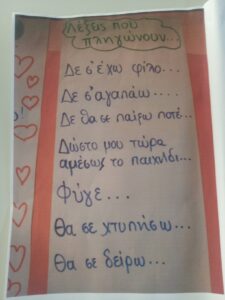 Λέξεις που
πληγώνουν...
Δε σ'έχω φίλο...
Δε σ'αγαπάω....
Δε θα σε παίξω ποτέ..
Δώστο μου τώρα
αμέσως το παιχνίδι...
Φύγε...
Θα σε χτυπήσω...
Θα σε δείρω...